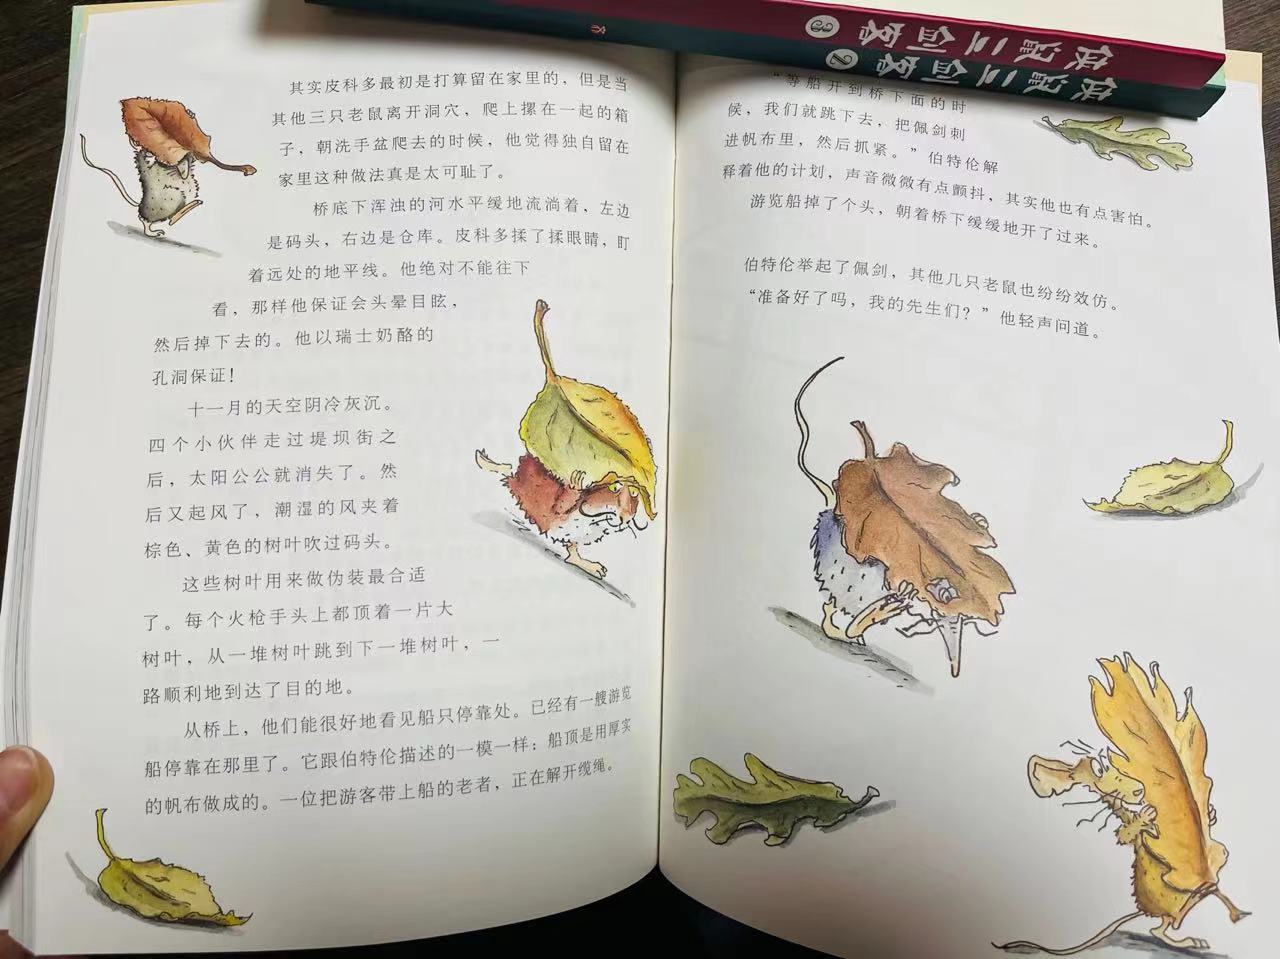 侠鼠三剑客 3
侠鼠三剑客 2
其实皮科多最初是打算留在家里的，但是当
其他三只老鼠离开洞穴，爬上摞在一起的箱
子，朝洗手盆爬去的时候，他觉得独自留在
家里这种做法真是太可耻了。
桥底下浑浊的河水平缓地流淌着，左边
是码头，右边是仓库。皮科多揉了揉眼睛，盯
着远处的地平线。他绝对不能往下
看，那样他保证会头晕目眩，
然后掉下去的。他以瑞士奶酪的
孔洞保证！
十一月的天空阴冷灰沉。
四个小伙伴走过堤坝街之
后，太阳公公就消失了。然
后又起风了，潮湿的风夹着
棕色、黄色的树叶吹过码头。
这些树叶用来做伪装最合适
了。每个火枪手头上都顶着一片大
树叶，从一堆树叶跳到下一堆树叶，一
路顺利地到达了目的地。
从桥上，他们能很好地看见船只停靠处。已经有一艘游览
船停靠在那里了。它跟伯特伦描述的一模一样：船顶是用厚实
的帆布做成的。一位把游客带上船的老者，正在解开缆绳。
“等船开到桥下面的时
候，我们就跳下去，把佩剑刺
进帆布里，然后抓紧。”伯特伦解
释着他的计划，声音微微有点颤抖，其实他也有点害怕。
游览船掉了个头，朝着桥下缓缓地开了过来。
伯特伦举起了佩剑，其他几只老鼠也纷纷效仿。
“准备好了吗，我的先生们？”他轻声问道。